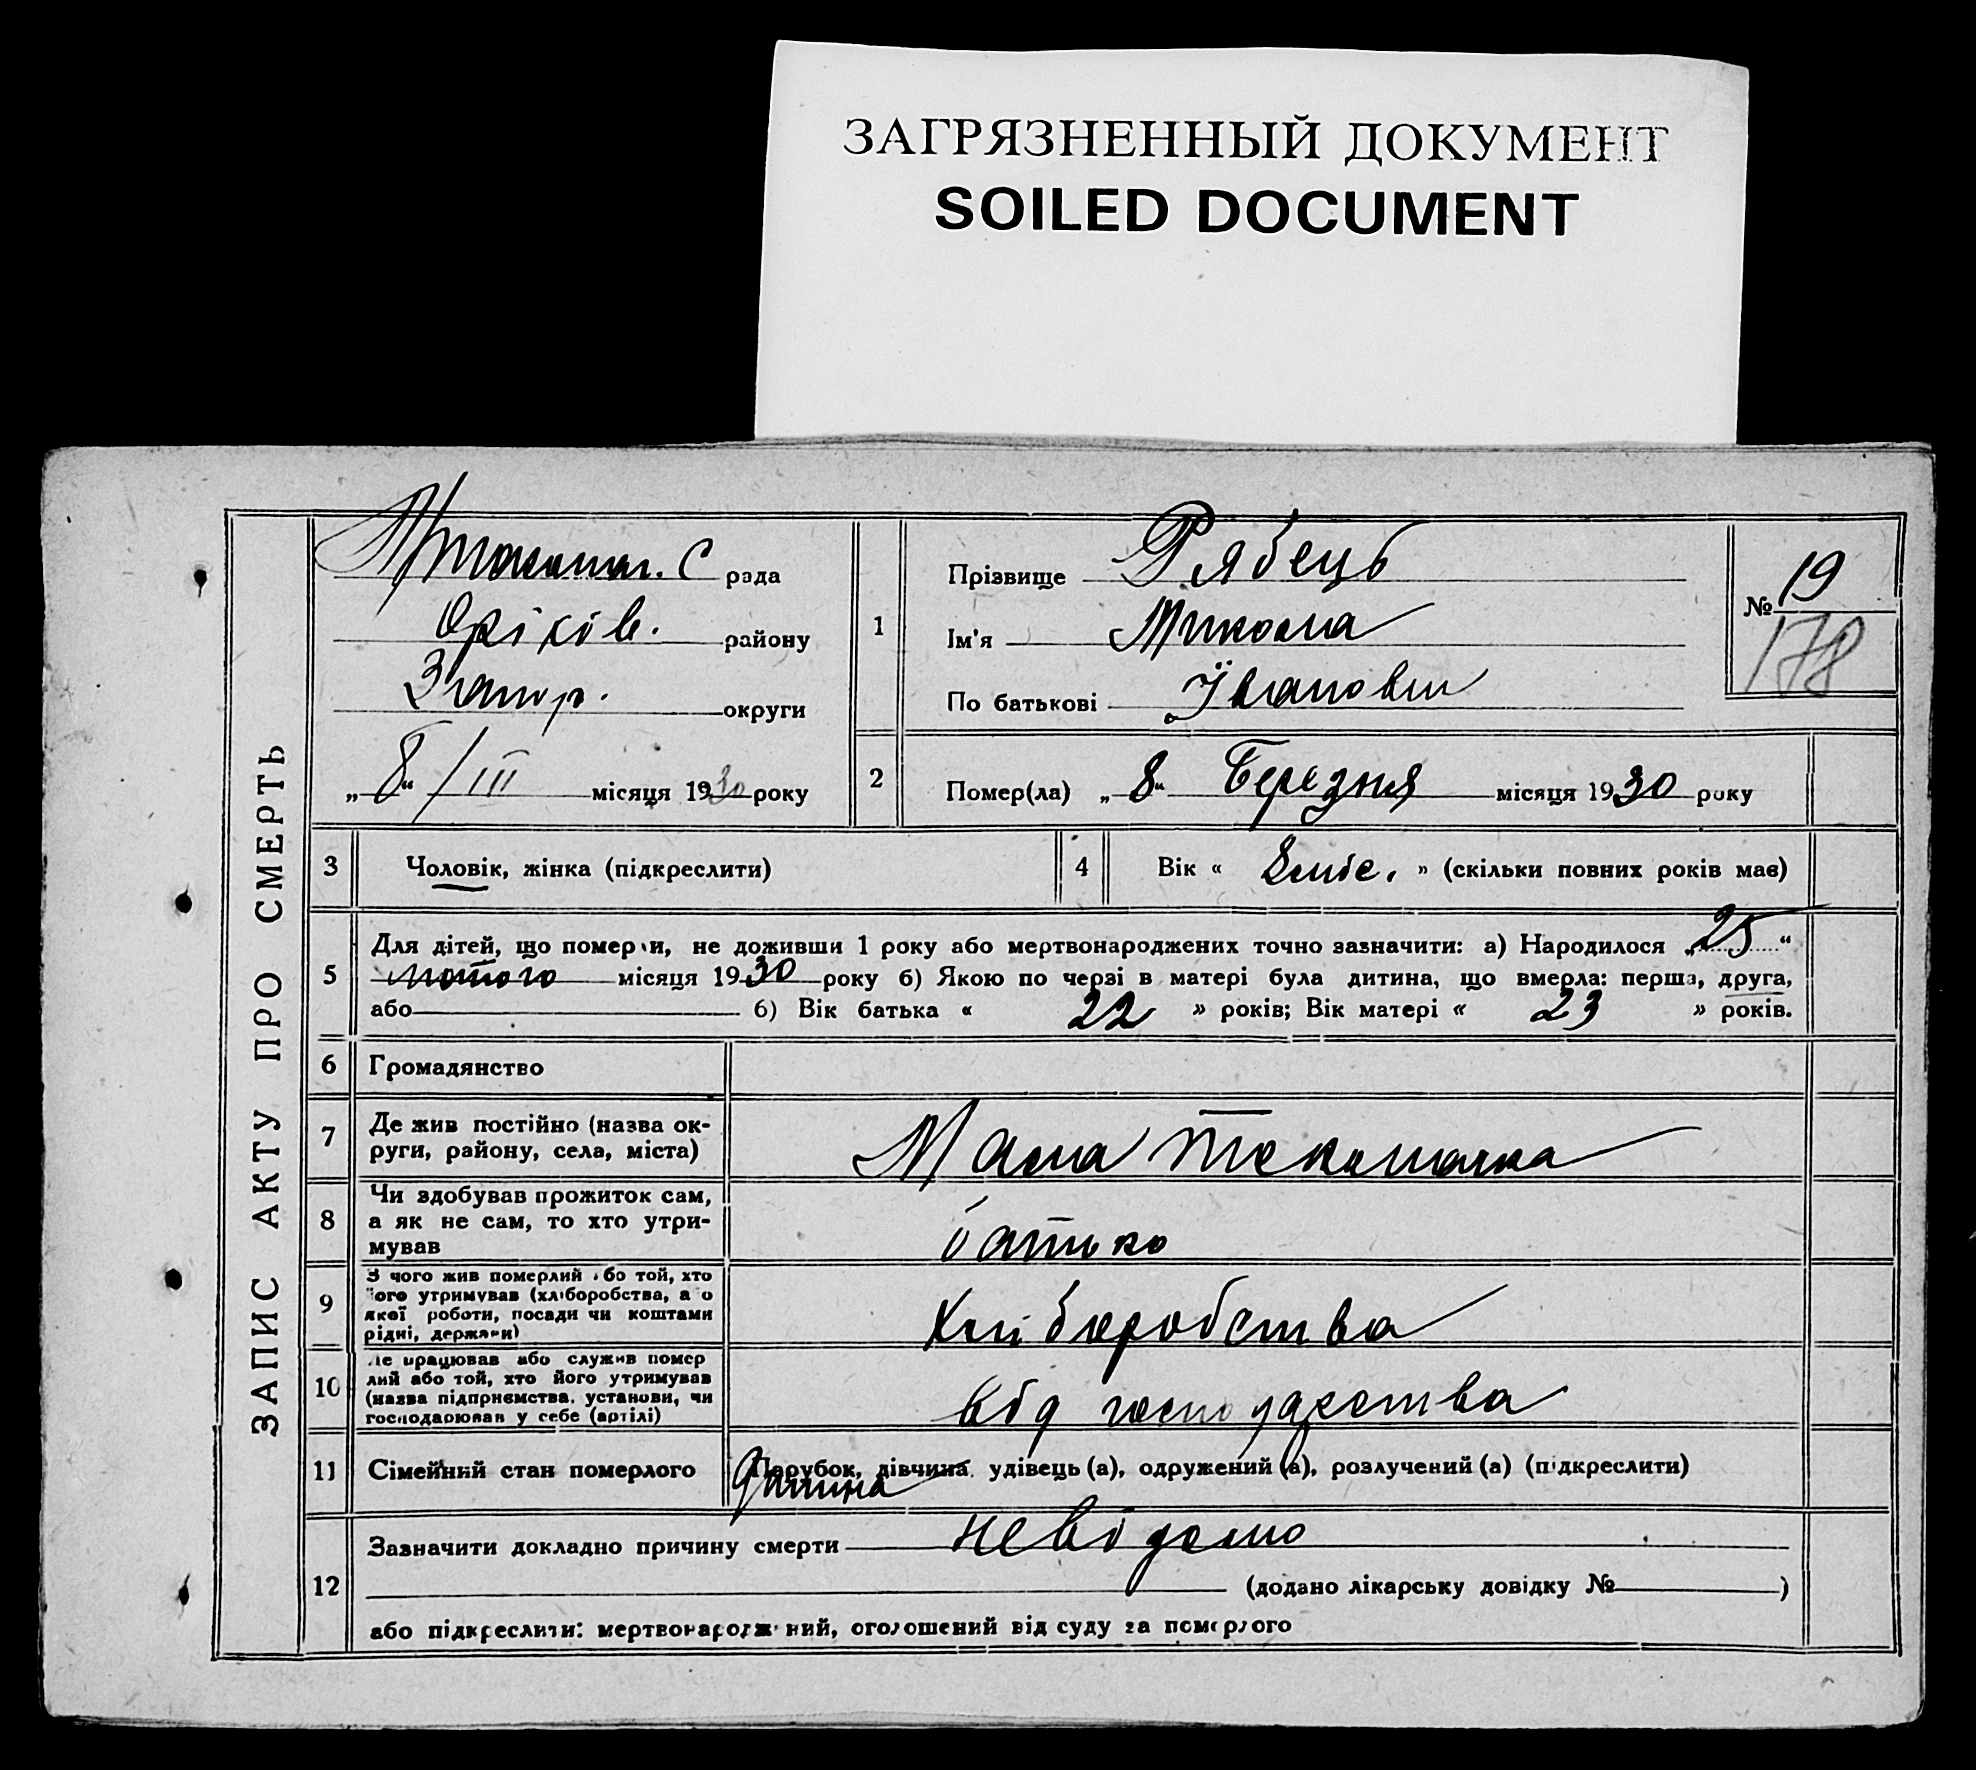 ЗАГРЯЗНЕННЫЙ ДОКУМЕНТ
SOILED DOCUMENT
ЗАПИС АКТУ ПРО СМЕРТЬ
С рада
Оріхів. району
Запор. округи
„8“ / III місяця 1930 року
1
Прізвище Рябець
Ім'я Микола
По батькові Іванович
№ 19
178
2
Помер(ла) „8“ Березня місяця 1930 року
3 Чоловік, жінка (підкреслити)
4 Вік « » (скільки повних років мав)
5 Для дітей, що померли, не доживши 1 року або мертвонароджених точно зазначити: а) Народилося „25“
лютого місяця 1930 року б) Якою по черзі в матері була дитина, що вмерла: перша, друга,
або б) Вік батька « 22 » років; Вік матері « 23 » років.
6 Громадянство
7 Де жив постійно (назва ок-
руги, району, села, міста) Мала Токмачка
8 Чи здобував прожиток сам,
а як не сам, то хто утри-
мував батько
9 З чого жив померлий або той, хто
його утримував (хліборобства, а бо
якої роботи, посади чи коштами
рідні, держави) Хліборобства
10 Де працював або служив помер
лий або той, хто його утримував
(назва підприємства, установи, чи
господарював у себе (артілі) від господарства
11 Сімейний стан померлого Парубок, дівчина, удівець (а), одружений (а), розлучений (а) (підкреслити)
дитина
12 Зазначити докладно причину смерти невідомо
(додано лікарську довідку № )
або підкреслити: мертвонароджений, оголошений від суду за померлого